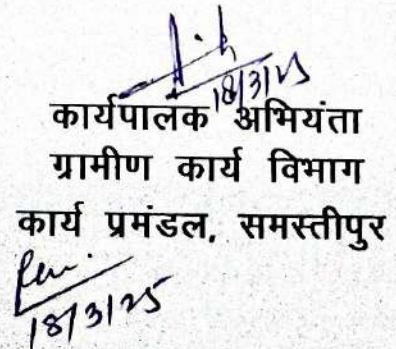 18/3/25
कार्यपालक अभियंता
ग्रामीण कार्य विभाग
कार्य प्रमंडल, समस्तीपुर
18/3/25